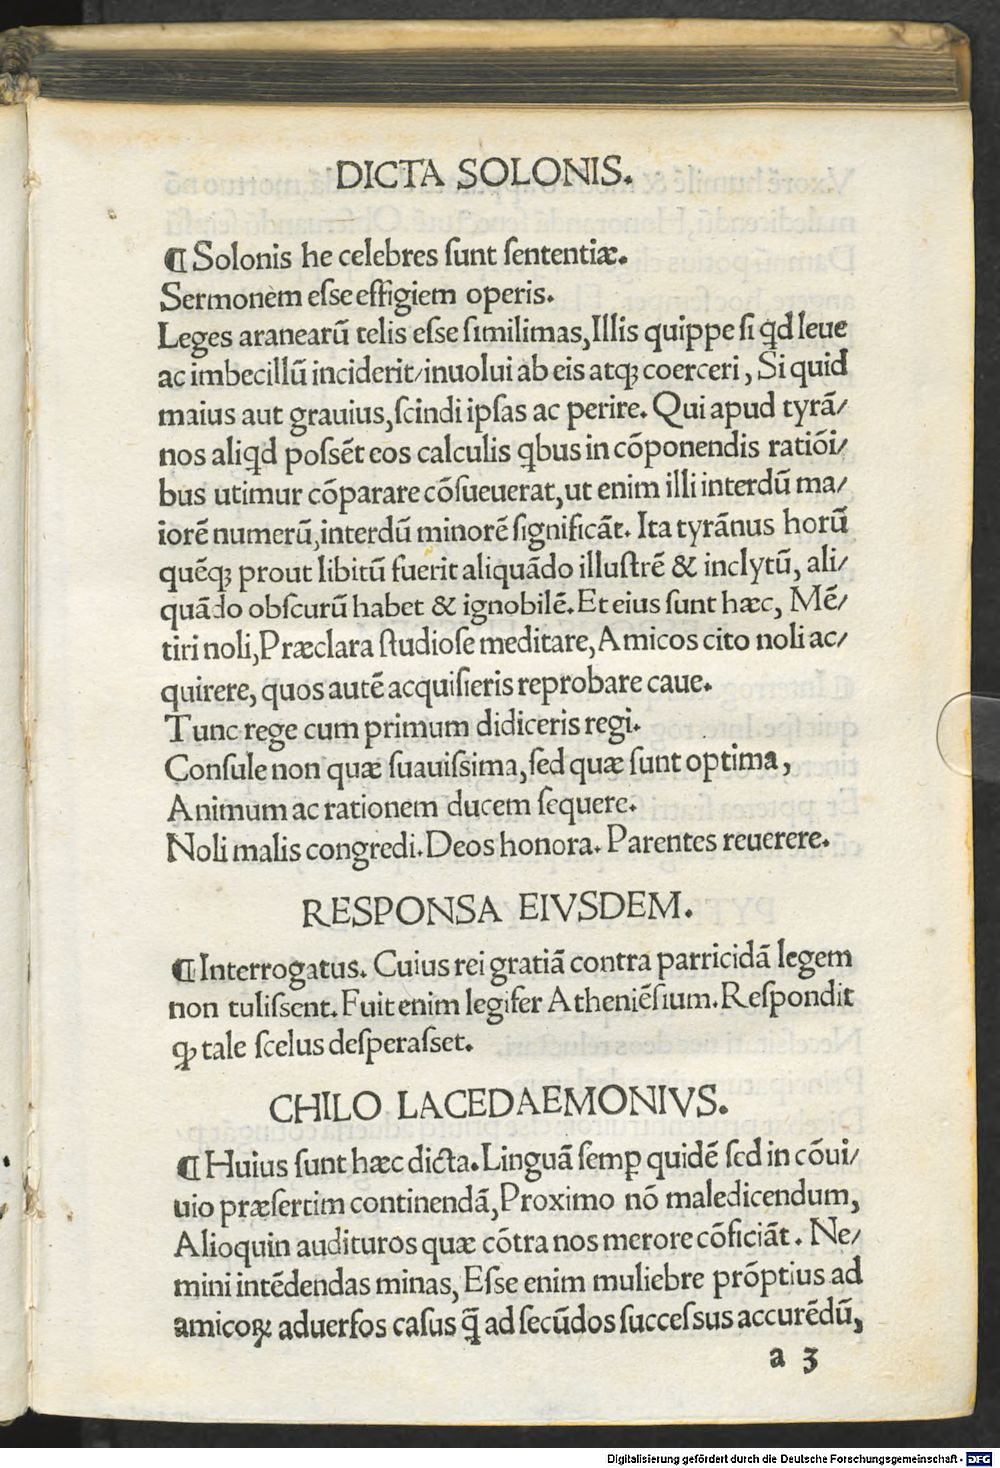 DICTA SOLONIS.
¶ Solonis he celebres ſunt ſententiæ.
Sermonem eſse effigiem operis.
Leges aranearū telis eſse ſimilimas, Illis quippe ſi qd leue
ac imbecillū inciderit/inuolui ab eis atqꝫ coerceri, Si quid
maius aut grauius, ſcindi ipſas ac perire. Qui apud tyrā/
nos aliqd poſsēt eos calculis qbus in cōponendis ratiōi/
bus utimur cōparare cōſueuerat, ut enim illi interdū ma/
iorē numerū, interdū minorē ſignificāt. Ita tyrānus horū
quēqꝫ prout libitū fuerit aliquādo illuſtrē & inclytū, ali/
quādo obſcurū habet & ignobilē. Et eius ſunt hæc, Mē/
tiri noli, Præclara ſtudioſe meditare, Amicos cito noli ac/
quirere, quos autē acquiſieris reprobare caue.
Tunc rege cum primum didiceris regi.
Conſule non quæ ſuauiſsima, ſed quæ ſunt optima,
Animum ac rationem ducem ſequere.
Noli malis congredi. Deos honora. Parentes reuerere.
RESPONSA EIVSDEM.
¶ Interrogatus. Cuius rei gratiā contra parricidā legem
non tuliſsent. Fuit enim legifer Atheniēſium. Reſpondit
ꝙ tale ſcelus deſperaſset.
CHILO LACEDAEMONIVS.
¶ Huius ſunt hæc dicta. Linguā ſemꝑ quidē ſed in cōui/
uio præſertim continendā, Proximo nō maledicendum,
Alioquin audituros quæ cōtra nos merore cōficiāt. Ne/
mini intēdendas minas, Eſse enim muliebre prōptius ad
amicoꝝ aduerſos caſus q̄ ad ſecūdos ſucceſsus accurēdū,
a 3
Digitalisierung gefördert durch die Deutsche Forschungsgemeinschaft - DFG